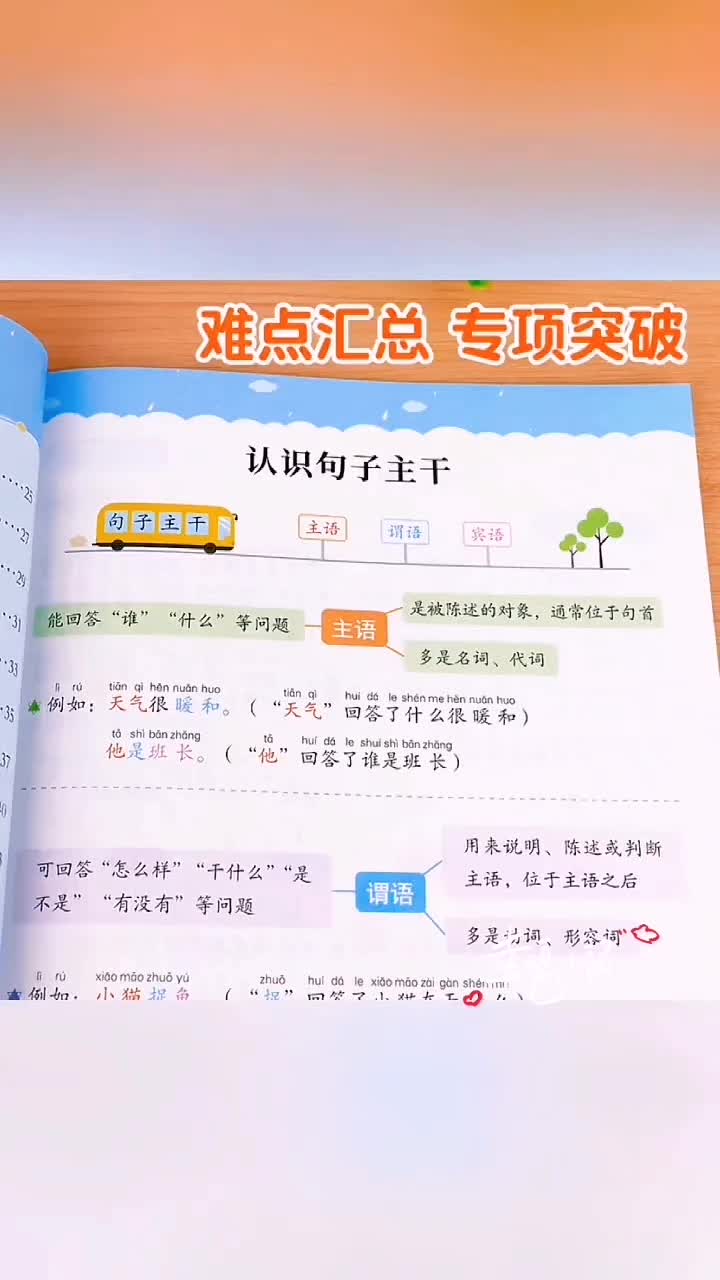 难点汇总 专项突破
认识句子主干
句子主干
主语 谓语 宾语
能回答“谁”“什么”等问题
主语
是被陈述的对象，通常位于句首
多是名词、代词
lì rú tiān qì hěn nuǎn huo tiān qì huí dá le shén me hěn nuǎn huo
例如：天气很暖和。（“天气”回答了什么很暖和）
tā shì bān zhǎng tā huí dá le shuí shì bān zhǎng
他是班长。（“他”回答了谁是班长）
可回答“怎么样”“干什么”“是
不是”“有没有”等问题
谓语
用来说明、陈述或判断
主语，位于主语之后
多是动词、形容词
lì rú xiǎo māo zhuō yú zhuō huí dá le xiǎo māo zài gàn shén
例如：小猫捉鱼（“捉”回答了小猫在干
25
27
29
31
33
35
37